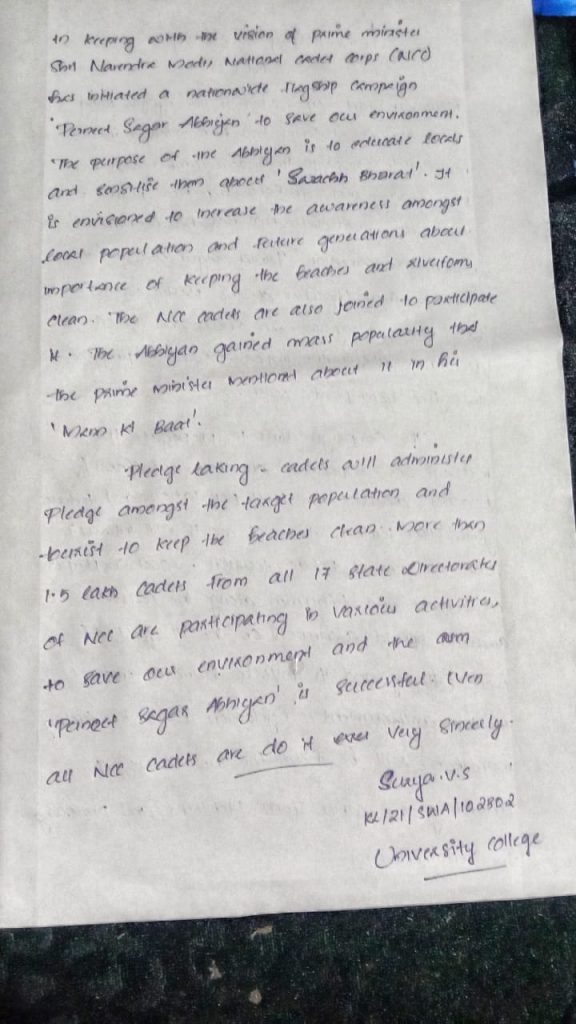 In keeping with the vision of prime minister
Shri Narendra Modi, National cadet corps (NCC)
has initiated a nationwide flagship campaign
'Puneet Sagar Abhiyan' to save our environment.
The purpose of the Abhiyan is to educate locals
and sensitise them about 'Swachh Bharat'. It
is envisioned to increase the awareness amongst
local population and future generations about
importance of keeping the beaches and
clean. The NCC cadets are also joined to participate
it. The Abhiyan gained mass popularity that
the prime minister mentiond about it in his
'Mann Ki Baat'.
Pledge taking - cadets will administer
Pledge amongst the target population and
to keep the beaches clean. More than
1.5 lakh cadets from all 17 state Directorates
of NCC are participating in various activities,
to save our environment and the aim
'Puneet Sagar Abhiyan' is successful. Even
all NCC cadets are do it very sincerly.
Surya.V.S
KL/21/SWA/102802
University College